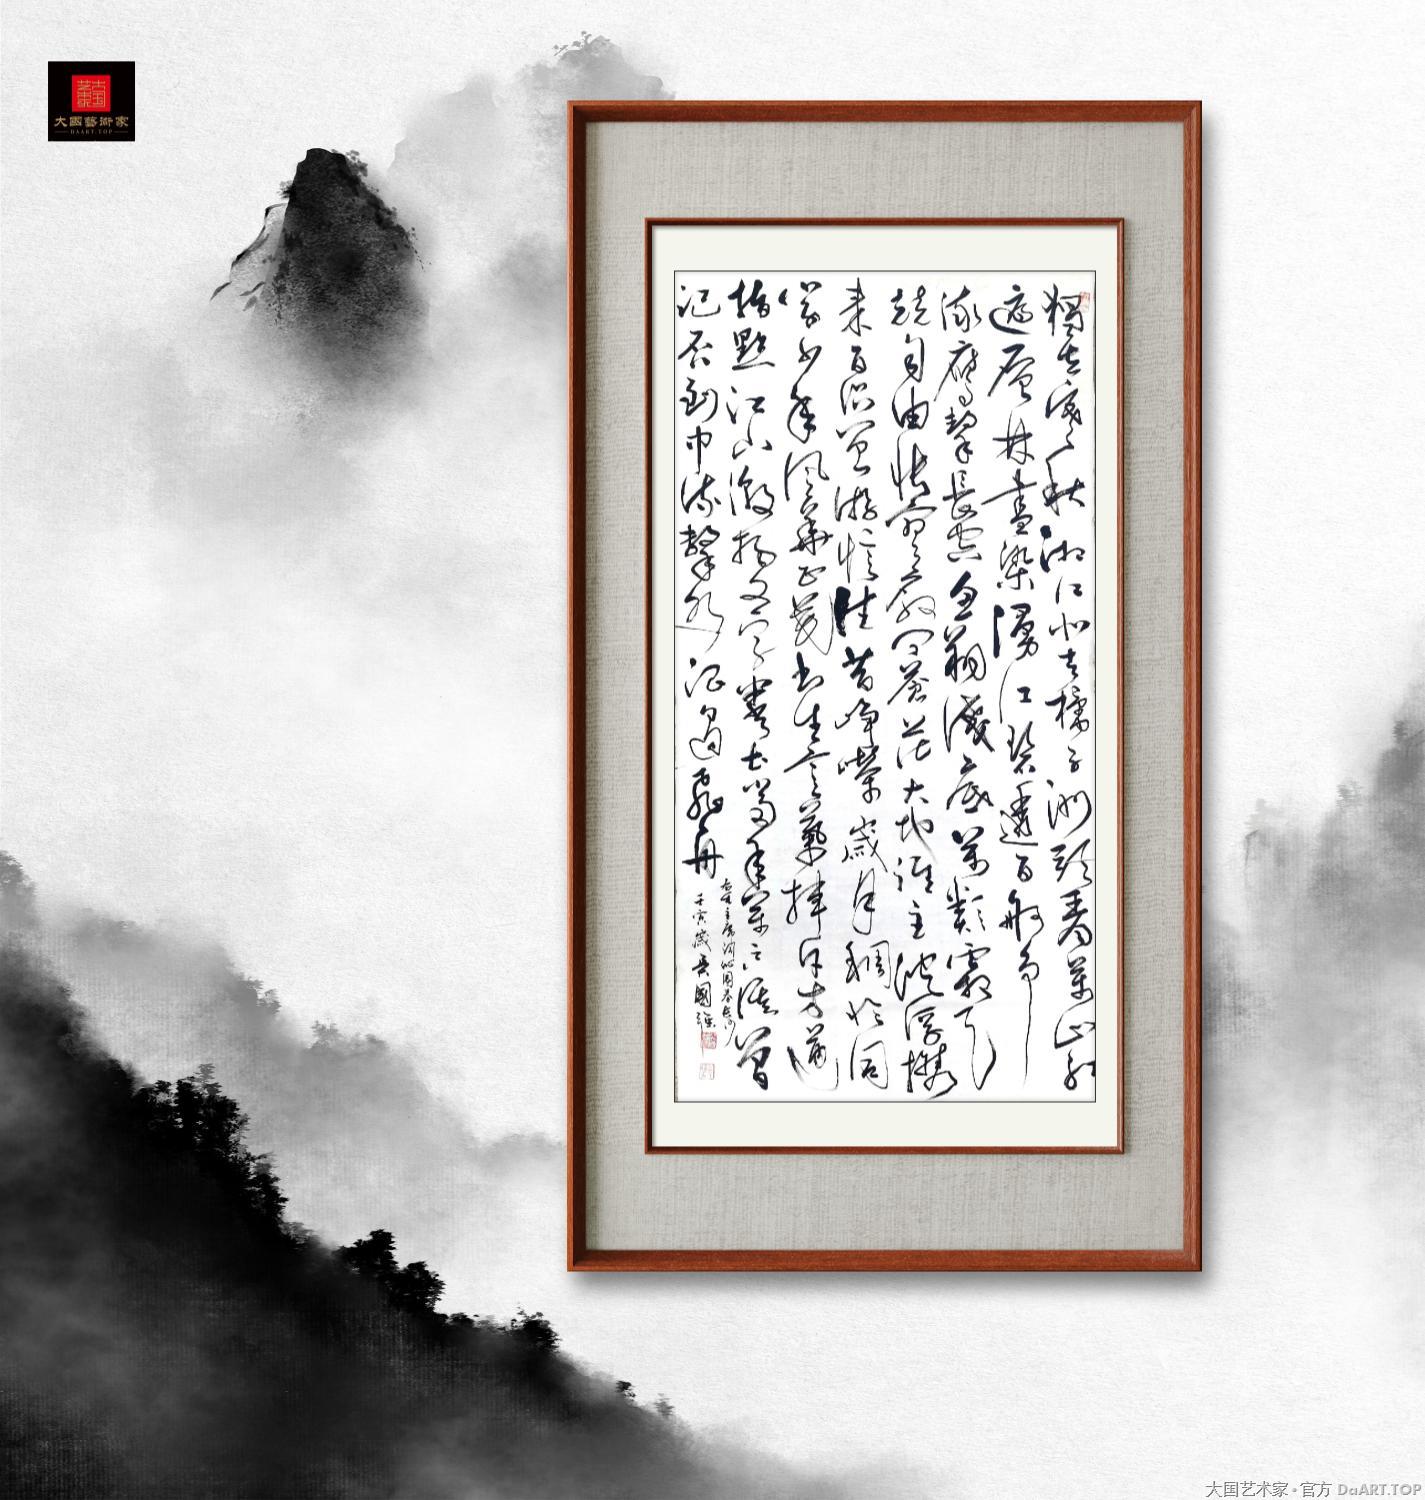 大國藝術家
DAART.TOP
獨立寒秋湘江北去橘子洲頭看萬山紅
遍層林盡染漫江碧透百舸爭
流鷹擊長空魚翔淺底萬類霜天
競自由悵寥廓問蒼茫大地誰主沈浮攜
來百侶曾游憶往昔崢嶸歲月稠恰同
學少年風華正茂書生意氣揮斥方遒
指點江山激揚文字糞土當年萬戶侯曾
記否到中流擊水浪遏飛舟
主席詞沁園春長沙
壬寅歲吳國強
大国艺术家·官方 DaART.TOP